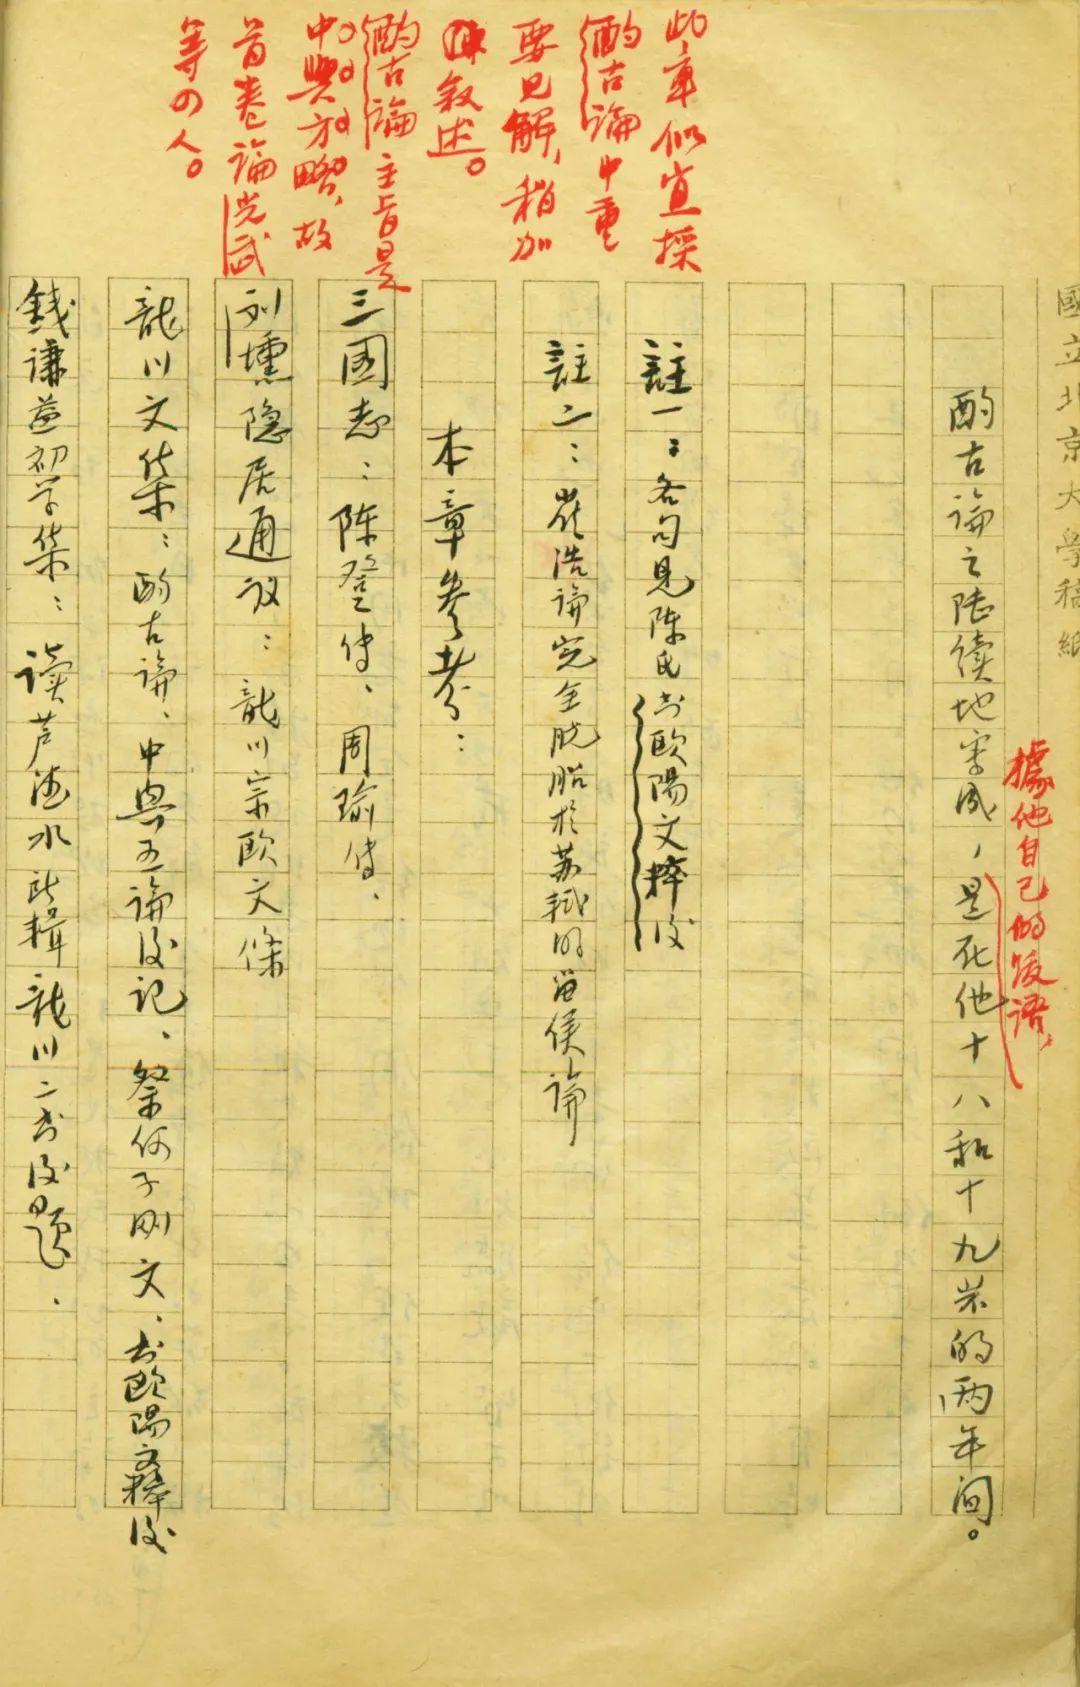 國立北京大學稿紙
此章似宜採
酌古論中重
要見解，稍加
敘述。
酌古論主旨是
中興方略，故
首卷論光武
等四人。
據他自己的後語，
酌古論之陸續地寫成，是在他十八和十九岁的两年间。
註一：各句見陈氏书歐陽文粹後
註二：崔浩論完全脱胎於苏轼的留侯論
本章參考：
三國志：陈登传、周瑜传、
刘壎隐居通议：龍川宗歐文條
龍川文集：酌古論、中興五論後記、祭何子刚文、书歐陽文粹後
錢謙益初学集：读芦德水所輯龍川二书後題、